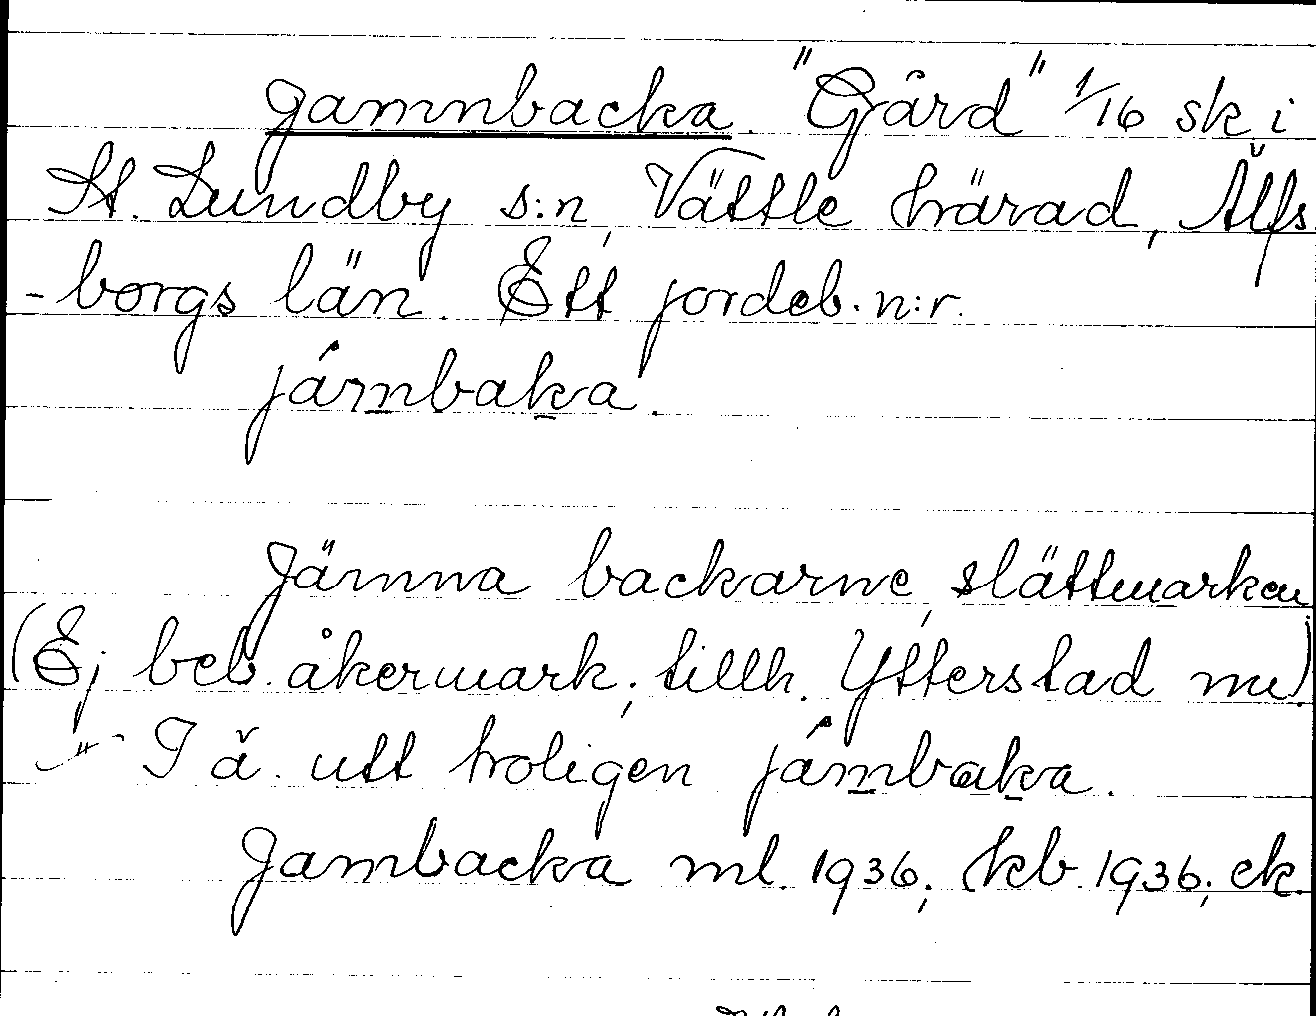 Jamnbacka. "Gård" 1/16 sk i
St. Lundby s:n, Vättle härad, Älfs-
-borgs län. Ett jordeb. n:r.
jámbaka.
Jämna backarne, slättmarken
(Ej beb. åkermark; tillh. Ytterstad me)
-"- I ä. utt troligen jámbaka.
Jambacka ml. 1936; (kb. 1936; ek.